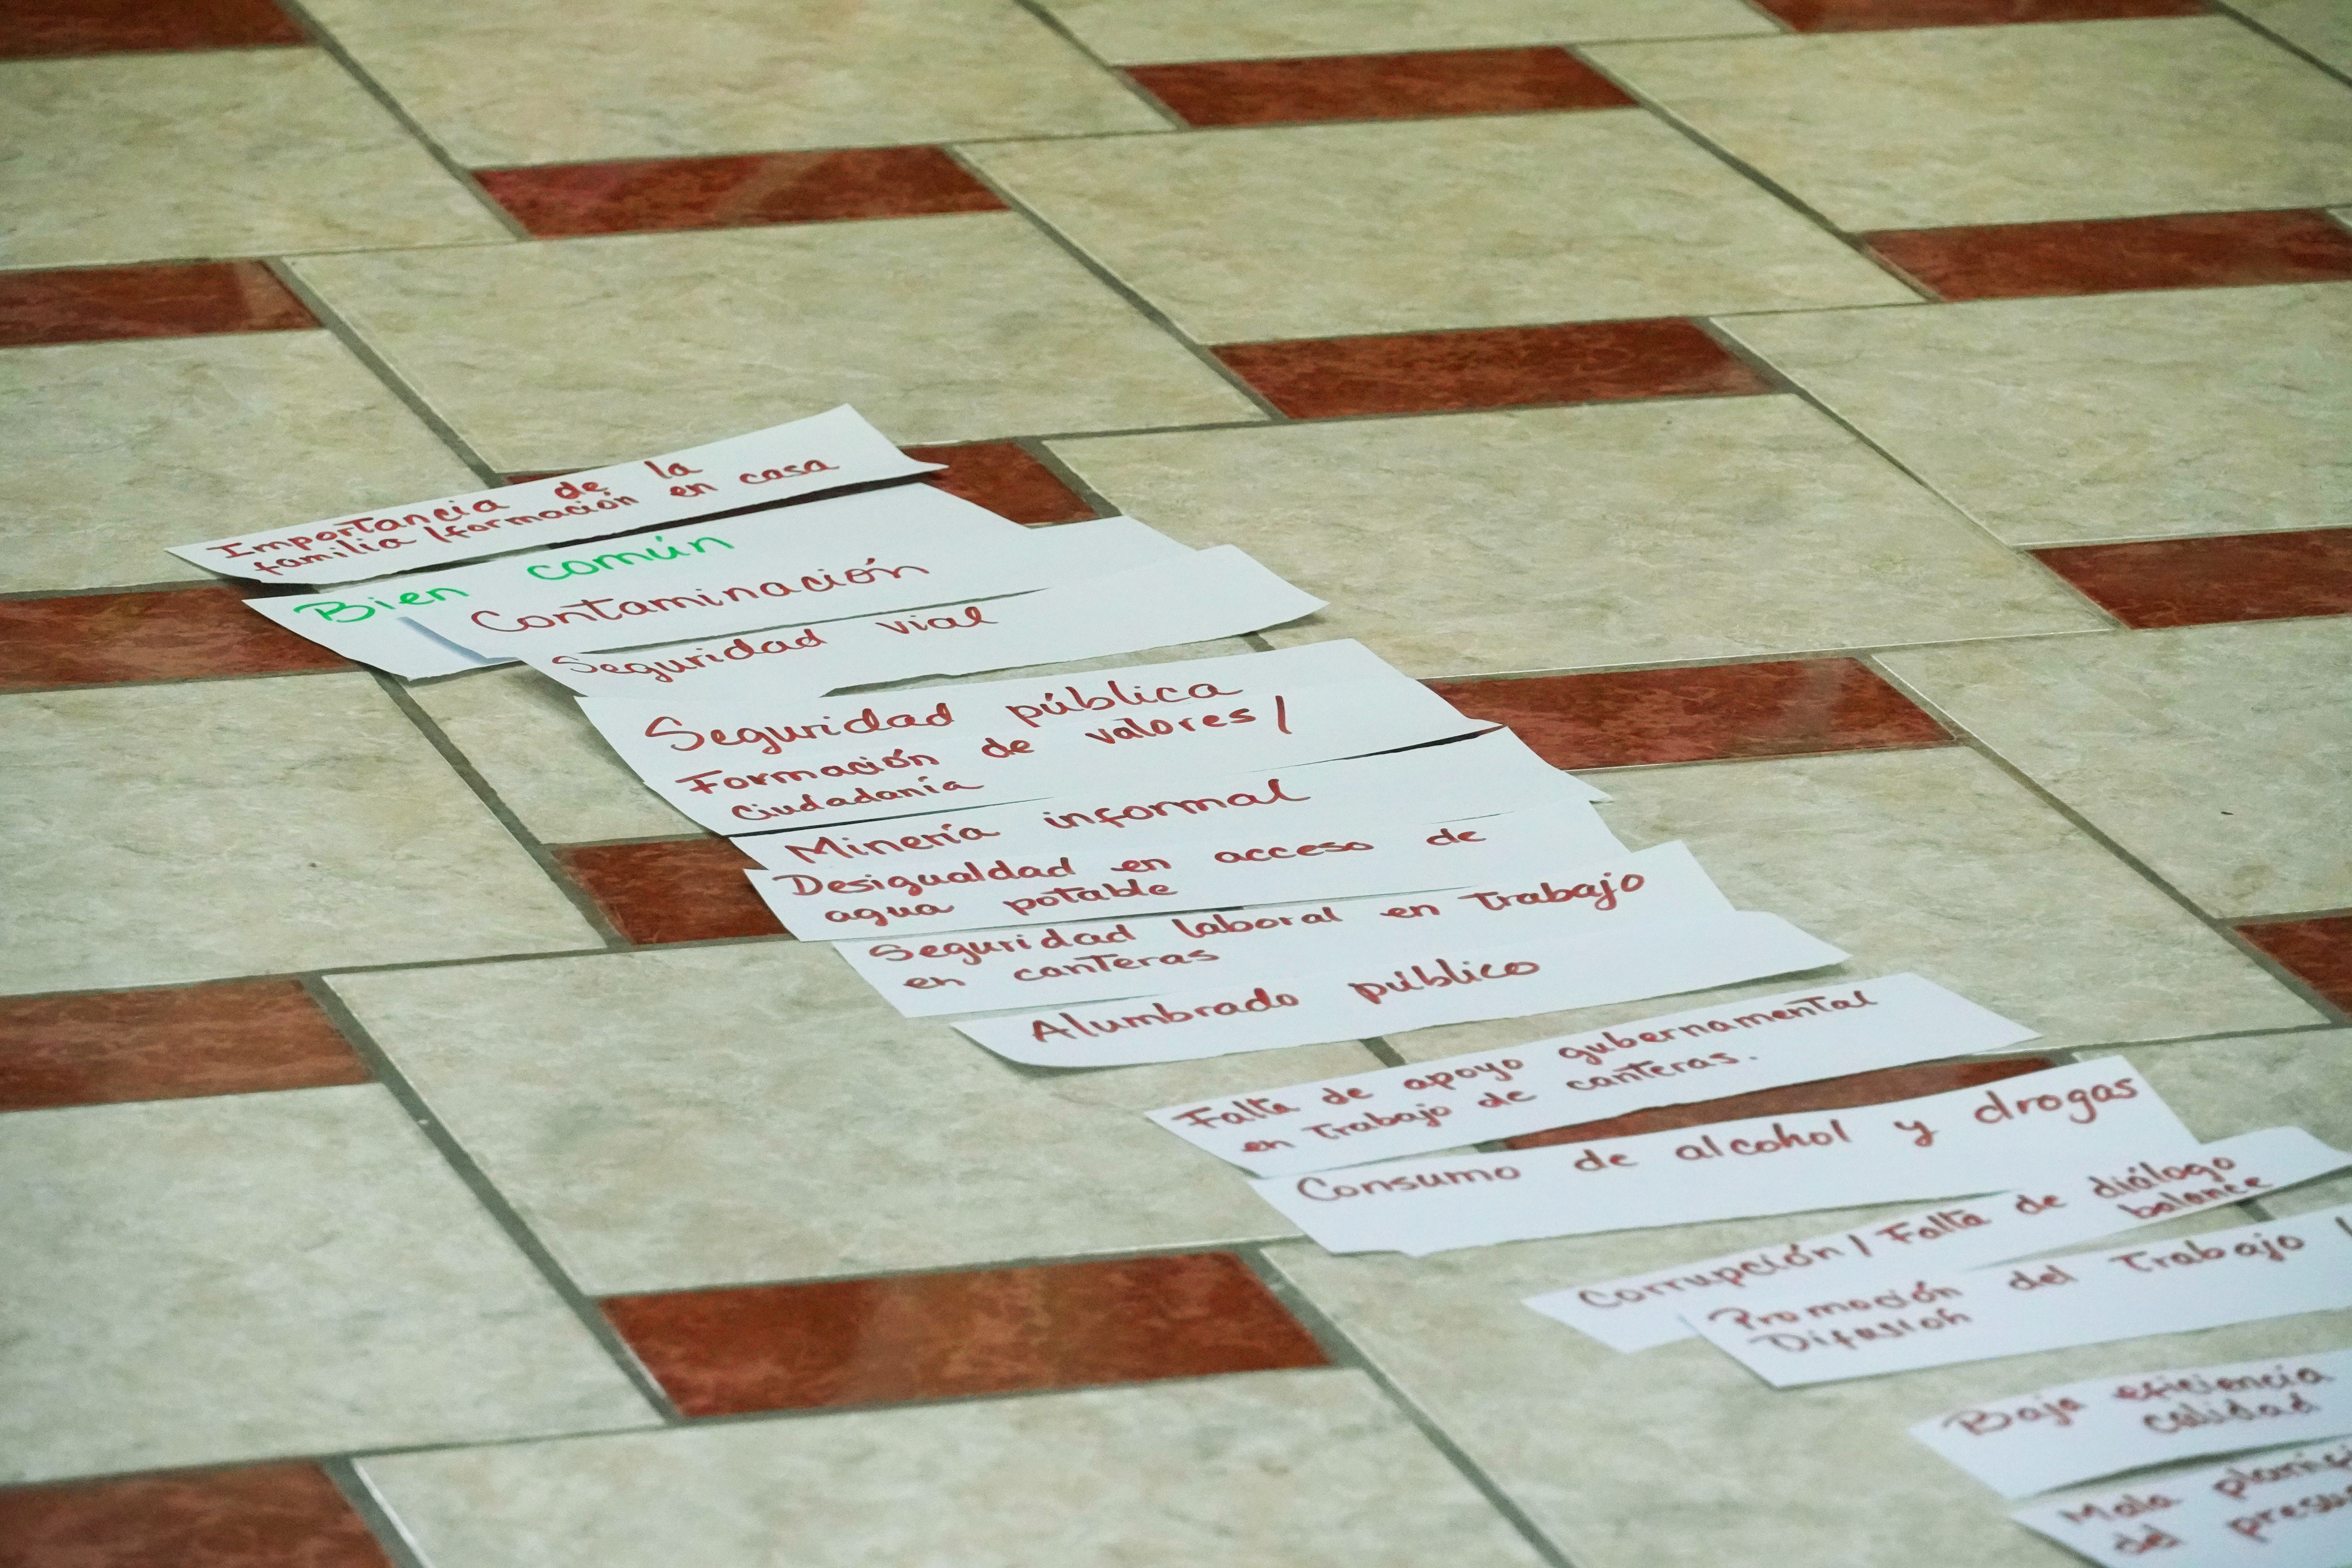 Importancia de la
familia / formación en casa
Bien común
Contaminación
Seguridad vial
Seguridad pública
Formación de valores /
Ciudadanía
Minería informal
Desigualdad en acceso de
agua potable
Seguridad laboral en trabajo
en canteras
Alumbrado público
Falta de apoyo gubernamental
en trabajo de canteras.
Consumo de alcohol y drogas
Corrupción / Falta de diálogo
balance
Promoción del trabajo /
Difusión
Baja eficiencia
calidad
Mala
del